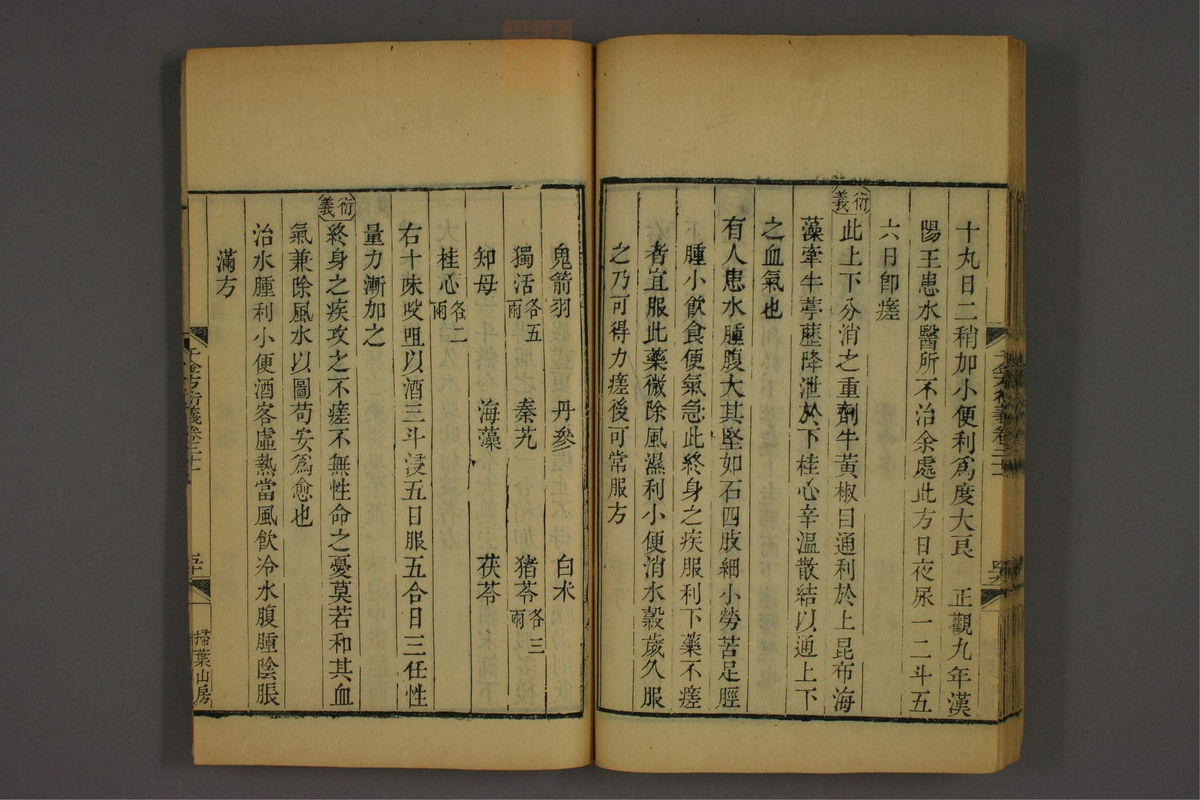 十丸日二稍加小便利爲度大良　正觀九年漢
陽王患水醫所不治余處此方日夜尿一二斗五
六日卽瘥
衍義
此上下分消之重劑牛黃椒目通利於上昆布海
藻牽牛葶藶降泄於下桂心辛溫散結以通上下
之血氣也
有人患水腫腹大其堅如石四肢細小勞苦足脛
腫小飲食便氣急此終身之疾服利下藥不瘥
者宜服此藥微除風濕利小便消水穀歲久服
之乃可得力瘥後可常服方
鬼箭羽　丹參　白朮
獨活各五兩　秦艽　猪苓各三兩
知母　海藻　茯苓
桂心各二兩
右十味㕮咀以酒三斗浸五日服五合日三任性
量力漸加之
衍義
終身之疾攻之不瘥不無性命之憂莫若和其血
氣兼除風水以圖苟安爲愈也
治水腫利小便酒客虛熱當風飲冷水腹腫陰脹
滿方
千金方衍義卷二十一
掃葉山房